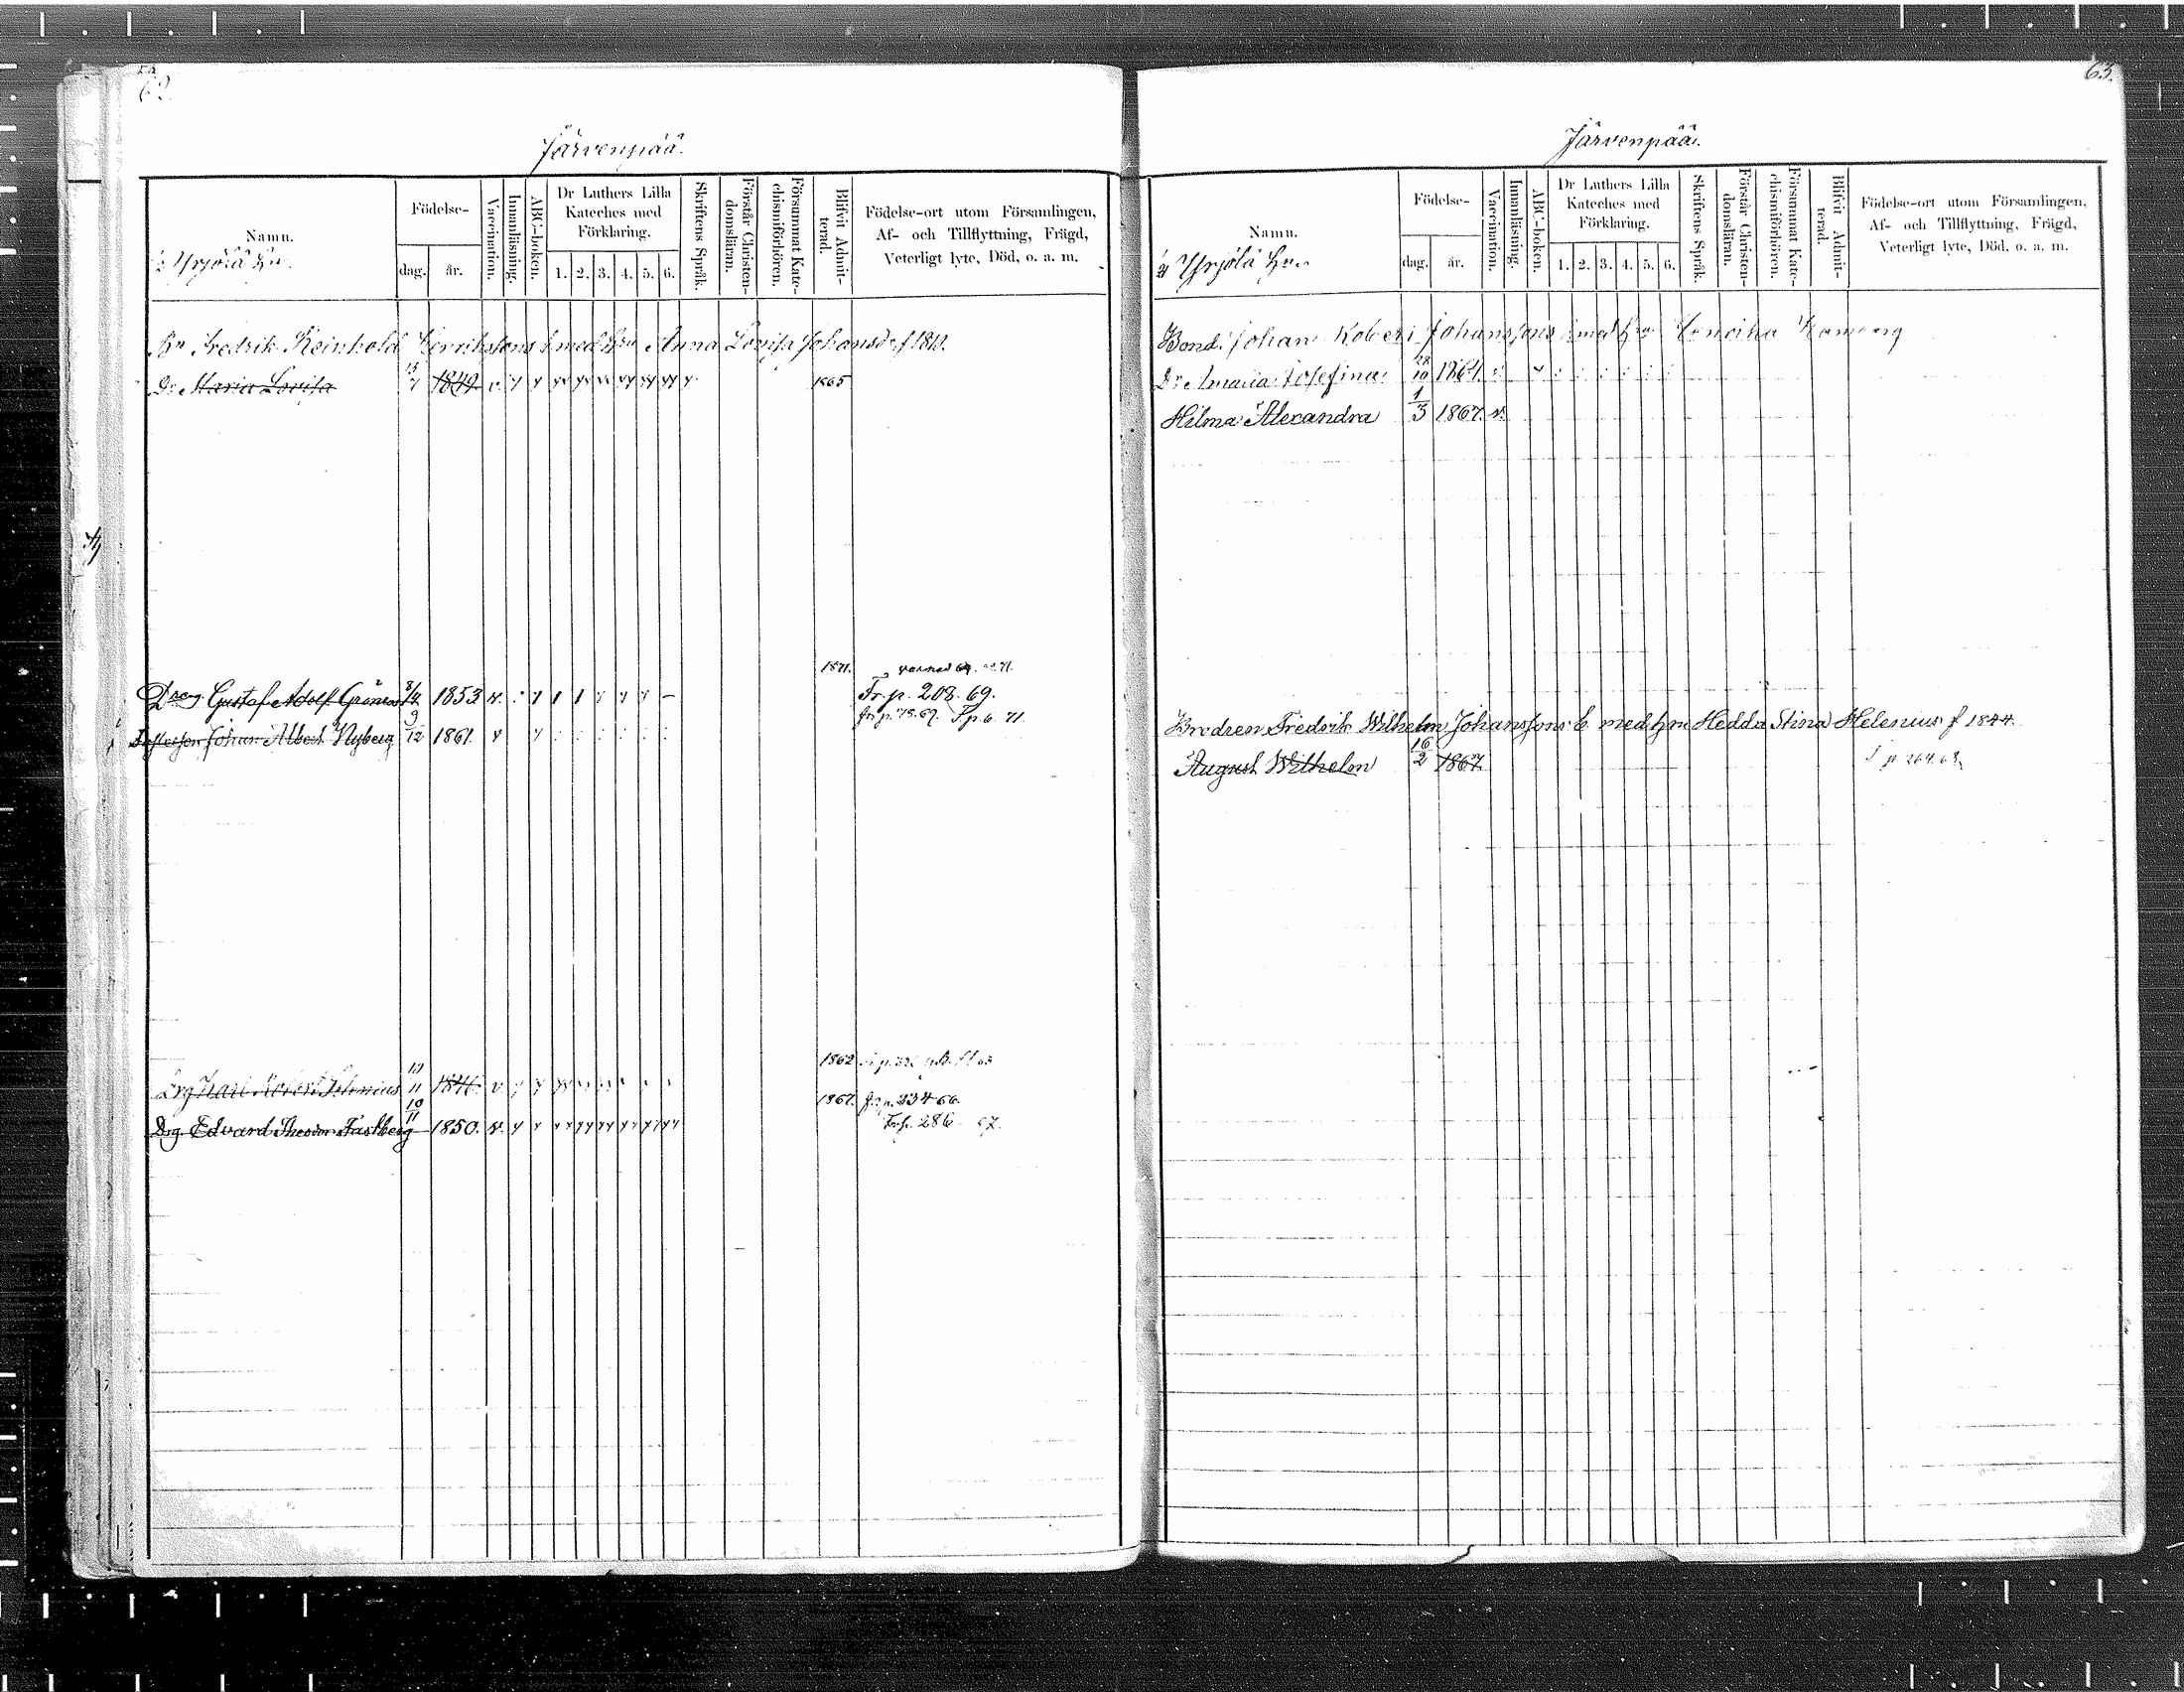 62.
Järvenpää.
Namn.
Yrjölä Hn.
Födelse-
dag.
år.
Vaccination.
Innanläsning.
ABC-boken.
Dr Luthers Lilla
Kateches med
Förklaring.
1. 2. 3. 4. 5. 6.
Skriftens Språk.
Förstår Christen-
domsläran.
Försummat Kate-
chismiförhören.
Blifvit Admit-
terad.
Födelse-ort utom Församlingen,
Af- och Tillflyttning, Frägd,
Veterligt lyte, Död, o. a. m.
Bn Fredrik Reinhold Henrikssons b. med Hru Anna Lovisa Johansdr f 1810.
Dr Maria Lovisa 15/7 1849 1865
1871.
Dreng Gustaf Adolf Grönroos 8/4 1853 Fr. p. 208. 69.
fr. p. 75. 69. T. p. 6. 71.
Johan Albert Nyberg 9/12 1861.
1862
Drg Karl Robert 10/11 1846.
1867. fr. p. 334 66.
Drg. Edvard Theodor Fastberg 10/11 1850. Tr. p. 286. 67.
63.
Järvenpää.
Namn.
Yrjölä Hn.
Födelse-
dag.
år.
Vaccination.
Innanläsning.
ABC-boken.
Dr Luthers Lilla
Kateches med
Förklaring.
1. 2. 3. 4. 5. 6.
Skriftens Språk.
Förstår Christen-
domsläran.
Försummat Kate-
chismiförhören.
Blifvit Admit-
terad.
Födelse-ort utom Församlingen,
Af- och Tillflyttning, Frägd,
Veterligt lyte, Död. o. a. m.
Bond. Johan Robert Johanssons b med Hru
Dr Amalia Josefina 28/10 1864.
Hilma Alexandra 1/3 1867. v.
Brodren Fredrik Wilhelm Johanssons b. med hru Hedda Stina Helenius f 1844.
August Wilhelm 16/2 1867. T p. 264. 68.